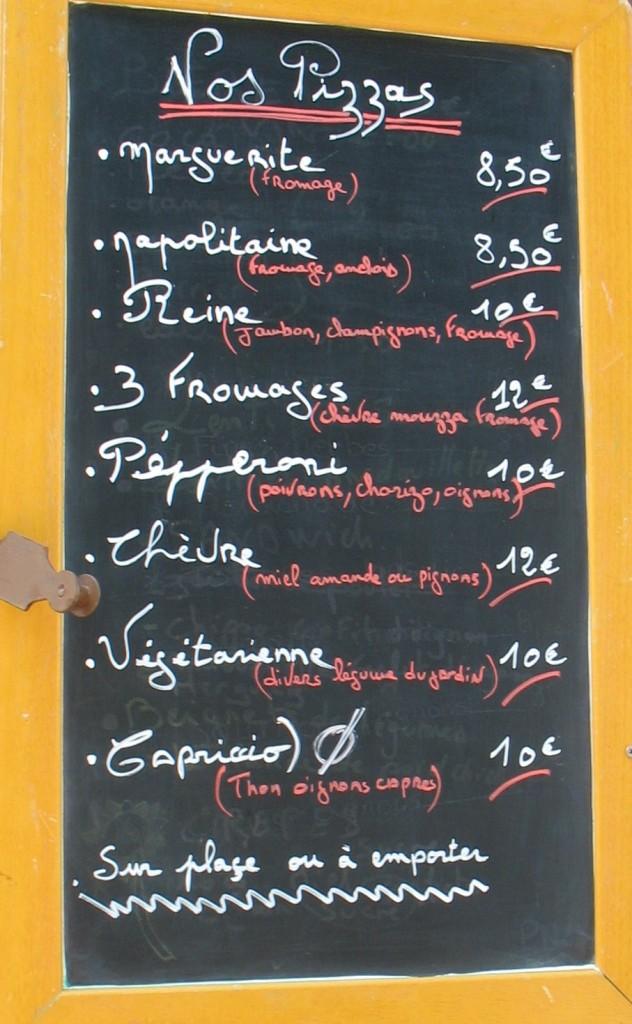 Nos Pizzas
• Marguerite 8,50€
(fromage)
• Napolitaine 8,50€
(fromage, anchois)
• Reine 10€
(Jambon, champignons, fromage)
• 3 Fromages 12€
(chèvre mouzza fromage)
• Pépperoni 10€
(poivrons, chorizo, oignons)
• Chèvre 12€
(miel amande ou pignons)
• Végétarienne 10€
(divers légume du jardin)
• Capriccio) 10€
(Thon oignons capres)
Sur plaçe ou à emporter